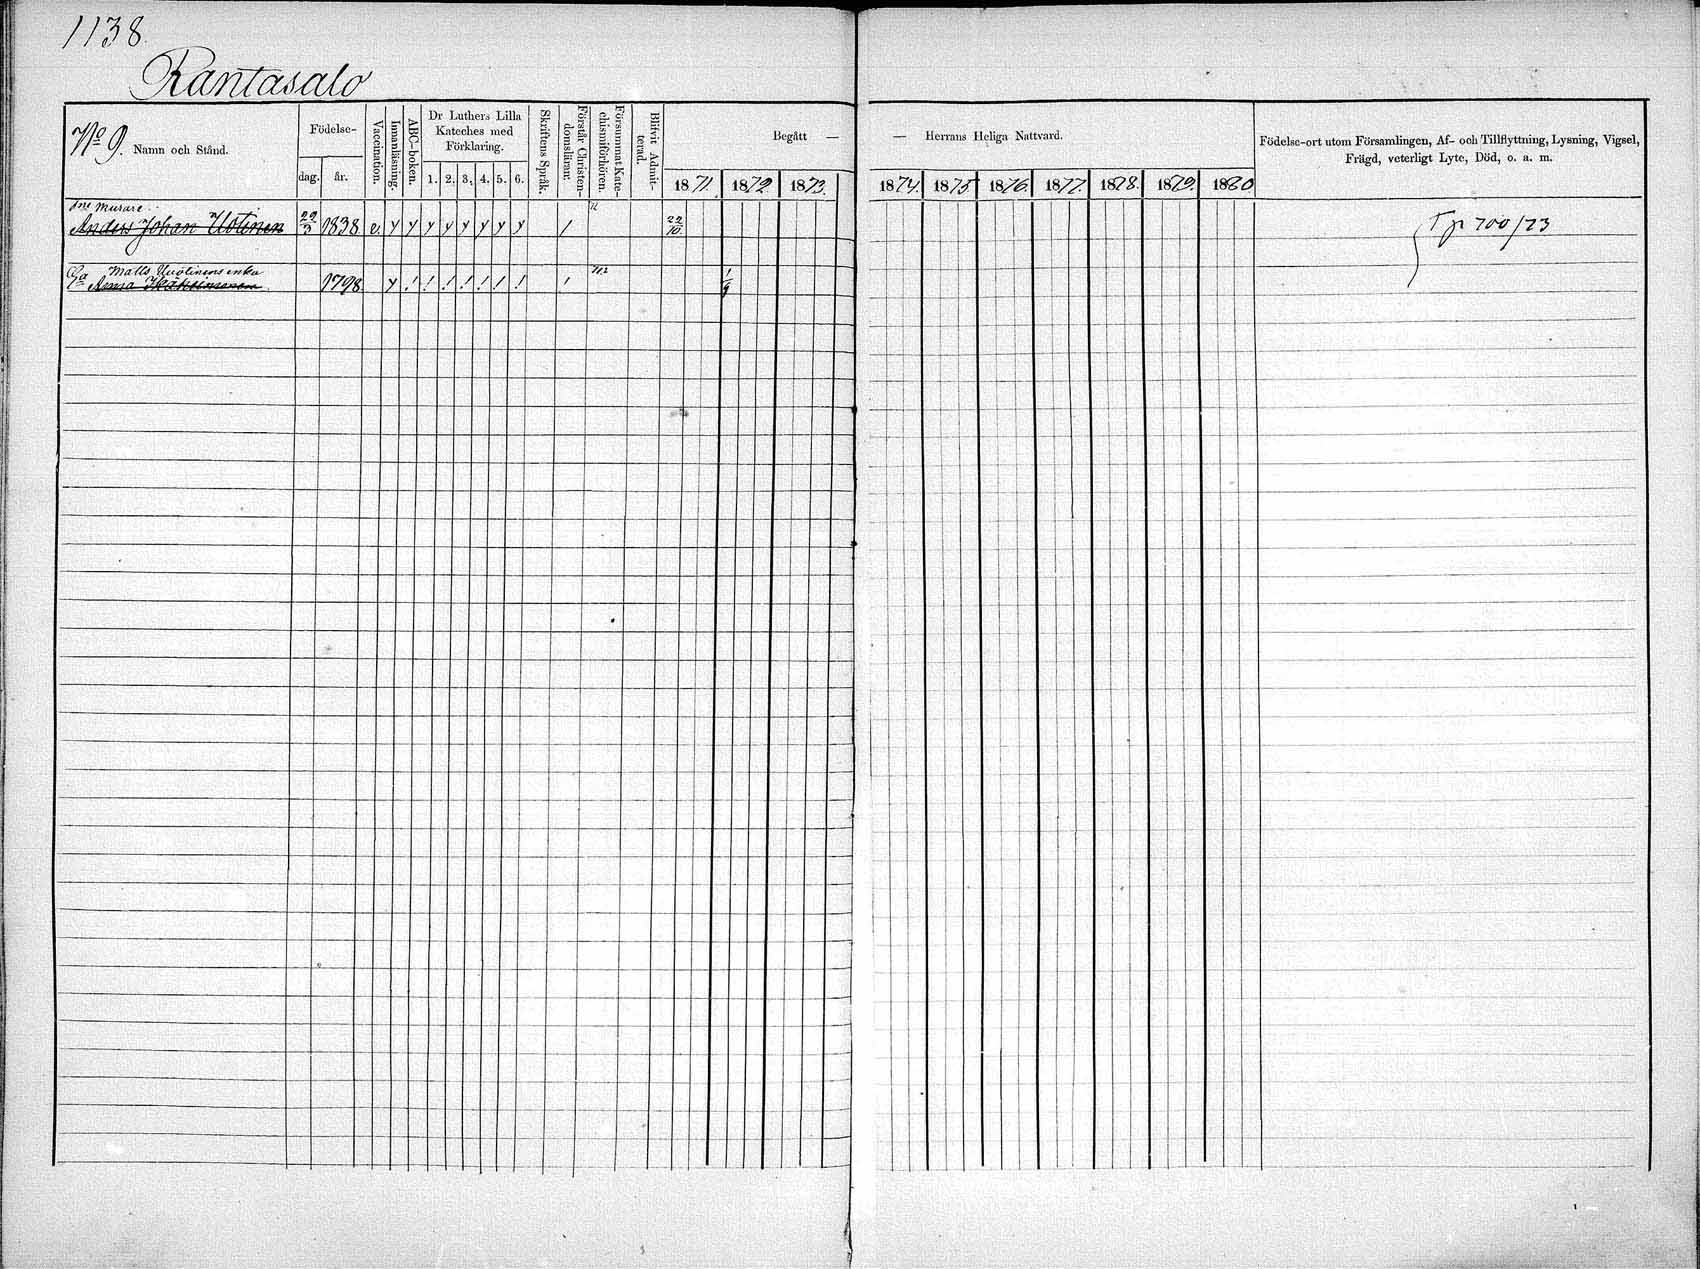 1138.
Rantasalo
No 9. Namn och Stånd.
Födelse-
dag. år.
Vaccination.
Innanläsning.
ABC-boken.
Dr Luthers Lilla
Kateches med
Förklaring.
1. 2. 3. 4. 5. 6.
Skriftens Språk.
Förstår Christen-
domsläran.
Försummat Kate-
chismiförhören.
Blifvit Admit-
terad.
Begått —
1871. 1872 1873.
— Herrans Heliga Nattvard.
1874. 1875 1876. 1877. 1878. 1879. 1880
Födelse-ort utom Församlingen, Af- och Tillflyttning, Lysning, Vigsel,
Frägd, veterligt Lyte, Död, o. a. m.
Murare
Anders Johan Uotinen 29/3 1838 v. 22/10 Tp 700/73
Matts Uuotinens enka
Anna 1798 1/9